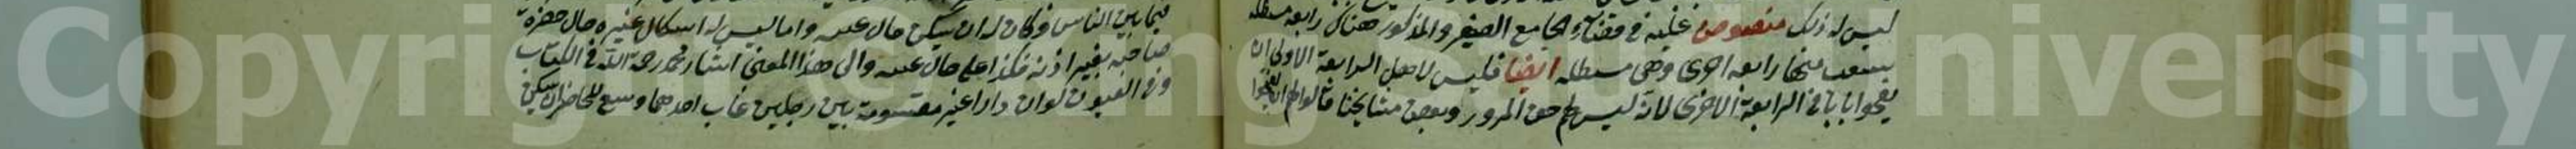 ليس له ذلك منصوص عليه في قضاء الجامع الصغير والمذكور هناك رابعة مستطيلة
يتشعب منها رابعة اخرى وهي مستطيلة ايضا فليس لاهل الرابعة الاولى ان
يفتحوا بابا في الرابعة الاخرى لانه ليس لهم حق المرور وبعض مشايخنا قالوا لهم ان يفتحوا
فيما بين الناس وكان له ان يسكن حال غيبته واما ليس له اسكان غيره حال حضرة
صاحبه بغير اذنه فكذا على حال غيبته والى هذا المعنى اشار محمد رحمه الله في الكتاب
وفي العيون لو ان دارا غير مقسومة بين رجلين غاب احدهما وسع للحاضر ان يسكن
Copyright © King Saud University